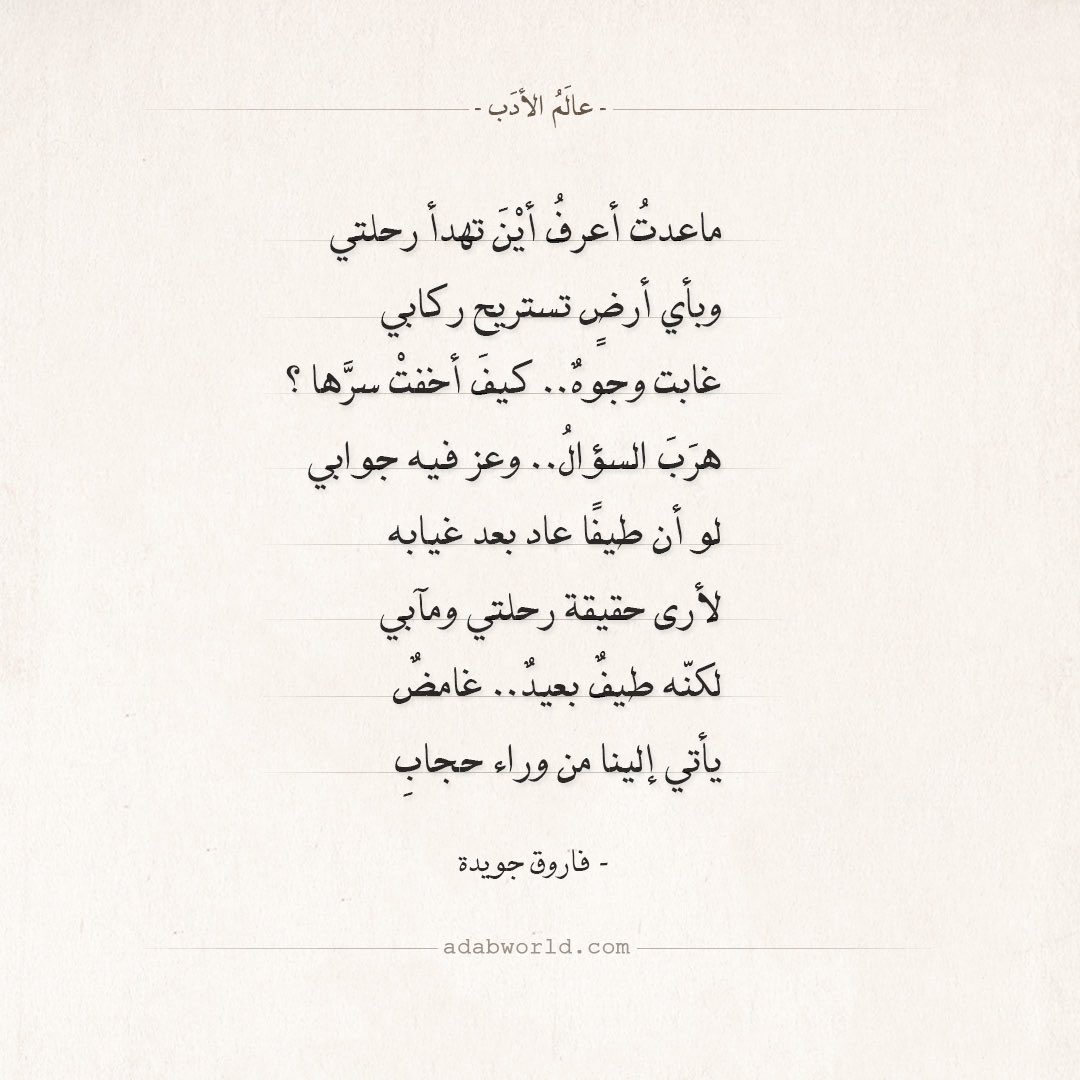 - عالَمُ الأدَب -
ماعدتُ أعرفُ أيْنَ تهدأ رحلتي
وبأي أرضٍ تستريح ركابي
غابت وجوهٌ.. كيفَ أخفتْ سرَّها ؟
هرَبَ السؤالُ.. وعز فيه جوابي
لو أن طيفًا عاد بعد غيابه
لأرى حقيقة رحلتي ومآبي
لكنّه طيفٌ بعيدٌ.. غامضٌ
يأتي إلينا من وراء حجابِ
- فاروق جويدة
adabworld.com